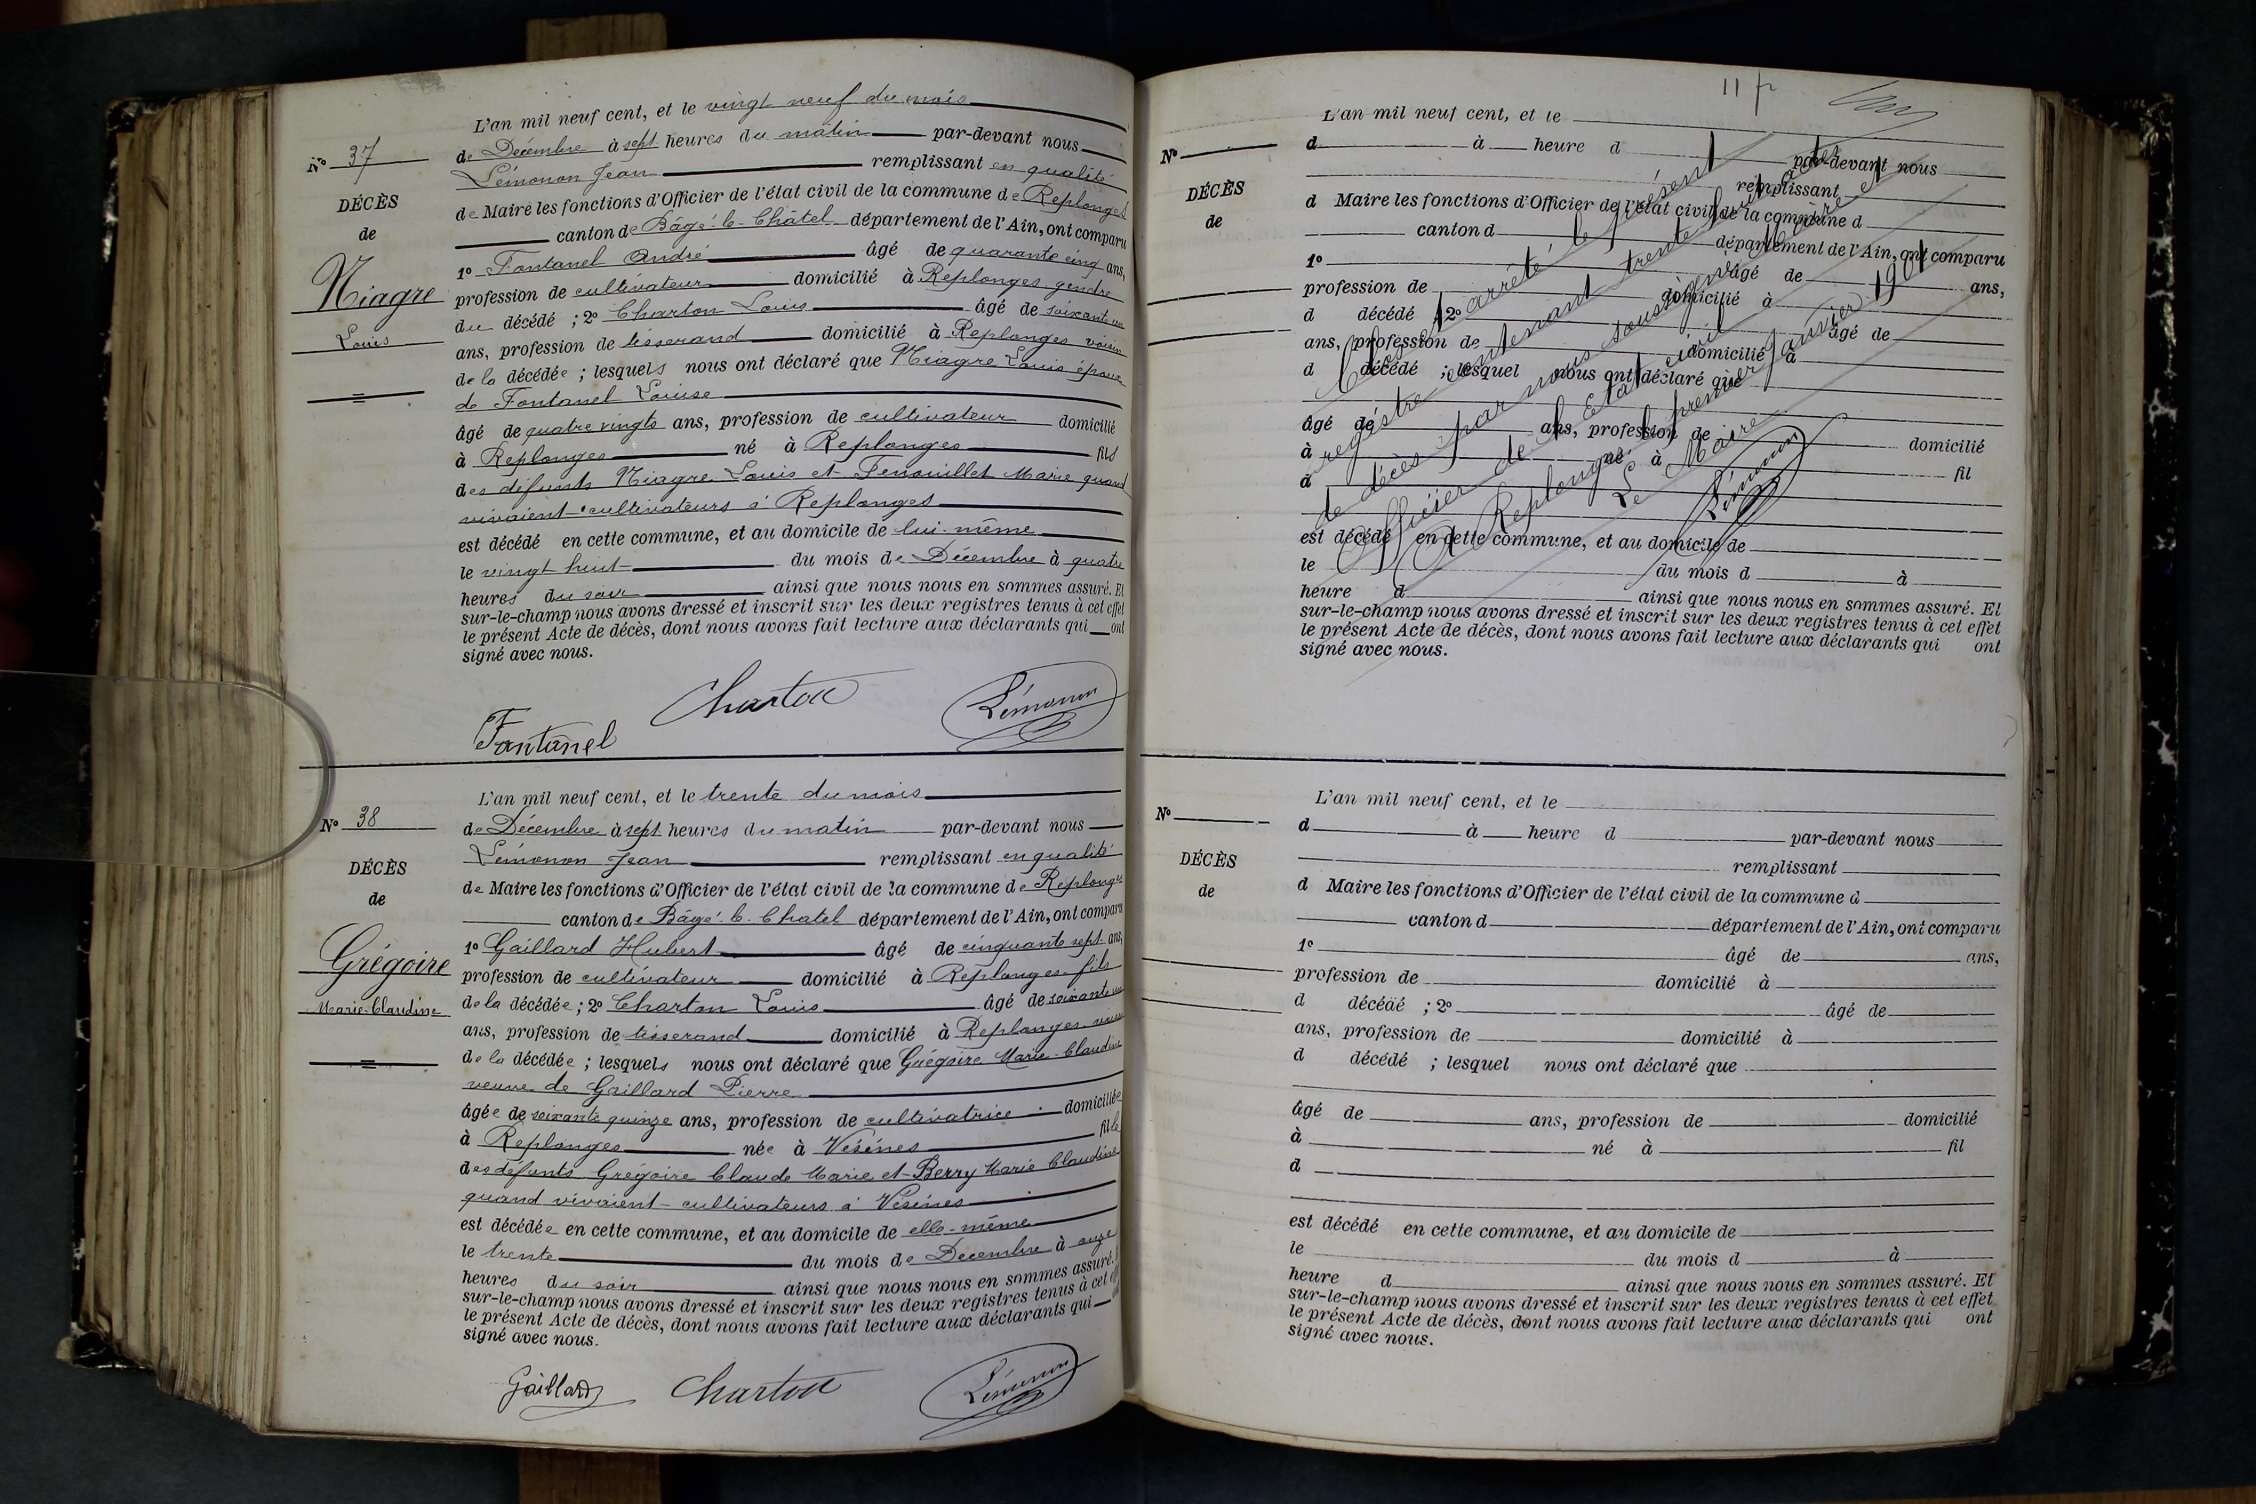 L'an mil neuf cent, et le vingt neuf du mois
N° 37
de Décembre à sept heures du matin par-devant nous
Lémonon Jean remplissant en qualité
DÉCÈS
de Maire les fonctions d'Officier de l'état civil de la commune de Replonges
de
canton de Bâgé-le-Châtel département de l'Ain, ont comparu
1° Fontanel André âgé de quarante cinq ans,
Niagre
profession de cultivateur domicilié à Replonges gendre
du décédé ; 2° Charton Louis âgé de soixante un
Louis
ans, profession de tisserand domicilié à Replonges voisin
de la décédée ; lesquels nous ont déclaré que Niagre Louis époux
de Fontanel Louise
âgé de quatre vingts ans, profession de cultivateur domicilié
à Replonges né à Replonges fils
des défunts Niagre Louis et Fenouillet Marie quand
vivaient cultivateurs à Replonges
est décédé en cette commune, et au domicile de lui-même
le vingt huit du mois de Décembre à quatre
heures du soir ainsi que nous nous en sommes assuré. Et
sur-le-champ nous avons dressé et inscrit sur les deux registres tenus à cet effet
le présent Acte de décès, dont nous avons fait lecture aux déclarants qui ont
signé avec nous.
Charton Lémonon
Fontanel
L'an mil neuf cent, et le trente du mois
N° 38
de Décembre à sept heures du matin par-devant nous
Lémonon Jean remplissant en qualité
DÉCÈS
de Maire les fonctions d'Officier de l'état civil de la commune de Replonges
de
canton de Bâgé-le-Chatel département de l'Ain, ont comparu
1° Gaillard Hubert âgé de cinquante sept ans,
Grégoire
profession de cultivateur domicilié à Replonges fils
Marie-Claudine
de la décédée ; 2° Charton Louis âgé de soixante un
ans, profession de tisserand domicilié à Replonges voisin
de la décédée ; lesquels nous ont déclaré que Grégoire Marie-Claudine
veuve de Gaillard Pierre
âgée de soixante quinze ans, profession de cultivatrice domiciliée
à Replonges née à Vésines fille
des défunts Grégoire Claude Marie et Berry Marie Claudine
quand vivaient cultivateurs à Vésines
est décédée en cette commune, et au domicile de elle-même
le trente du mois de Décembre à onze
heures du soir ainsi que nous nous en sommes assuré.
sur-le-champ nous avons dressé et inscrit sur les deux registres tenus à cet effet
le présent Acte de décès, dont nous avons fait lecture aux déclarants qui
signé avec nous.
Gaillard Charton Lémonon
L'an mil neuf cent, et le
N°
d à heure d par-devant nous
remplissant
DÉCÈS
d Maire les fonctions d'Officier de l'état civil de la commune d
de
canton d département de l'Ain, ont comparu
1° âgé de ans,
profession de domicilié à
d décédé ; 2° âgé de
ans, profession de domicilié à
d décédé ; lesquel nous ont déclaré que
âgé de ans, profession de domicilié
à né à fil
d
est décédé en cette commune, et au domicile de
le du mois d à
heure d ainsi que nous nous en sommes assuré. Et
sur-le-champ nous avons dressé et inscrit sur les deux registres tenus à cet effet
le présent Acte de décès, dont nous avons fait lecture aux déclarants qui ont
signé avec nous.
Clos et arrêté le présent
registre contenant trente huit actes
de décès par nous soussigné Maire et
Officier de l'Etat civil
A Replonges le premier Janvier 1901
Le Maire
Lémonon
L'an mil neuf cent, et le
N°
d à heure d par-devant nous
remplissant
DÉCÈS
d Maire les fonctions d'Officier de l'état civil de la commune d
de
canton d département de l'Ain, ont comparu
1° âgé de ans,
profession de domicilié à
d décédé ; 2° âgé de
ans, profession de domicilié à
d décédé ; lesquel nous ont déclaré que
âgé de ans, profession de domicilié
à né à fil
d
est décédé en cette commune, et au domicile de
le du mois d à
heure d ainsi que nous nous en sommes assuré. Et
sur-le-champ nous avons dressé et inscrit sur les deux registres tenus à cet effet
le présent Acte de décès, dont nous avons fait lecture aux déclarants qui ont
signé avec nous.